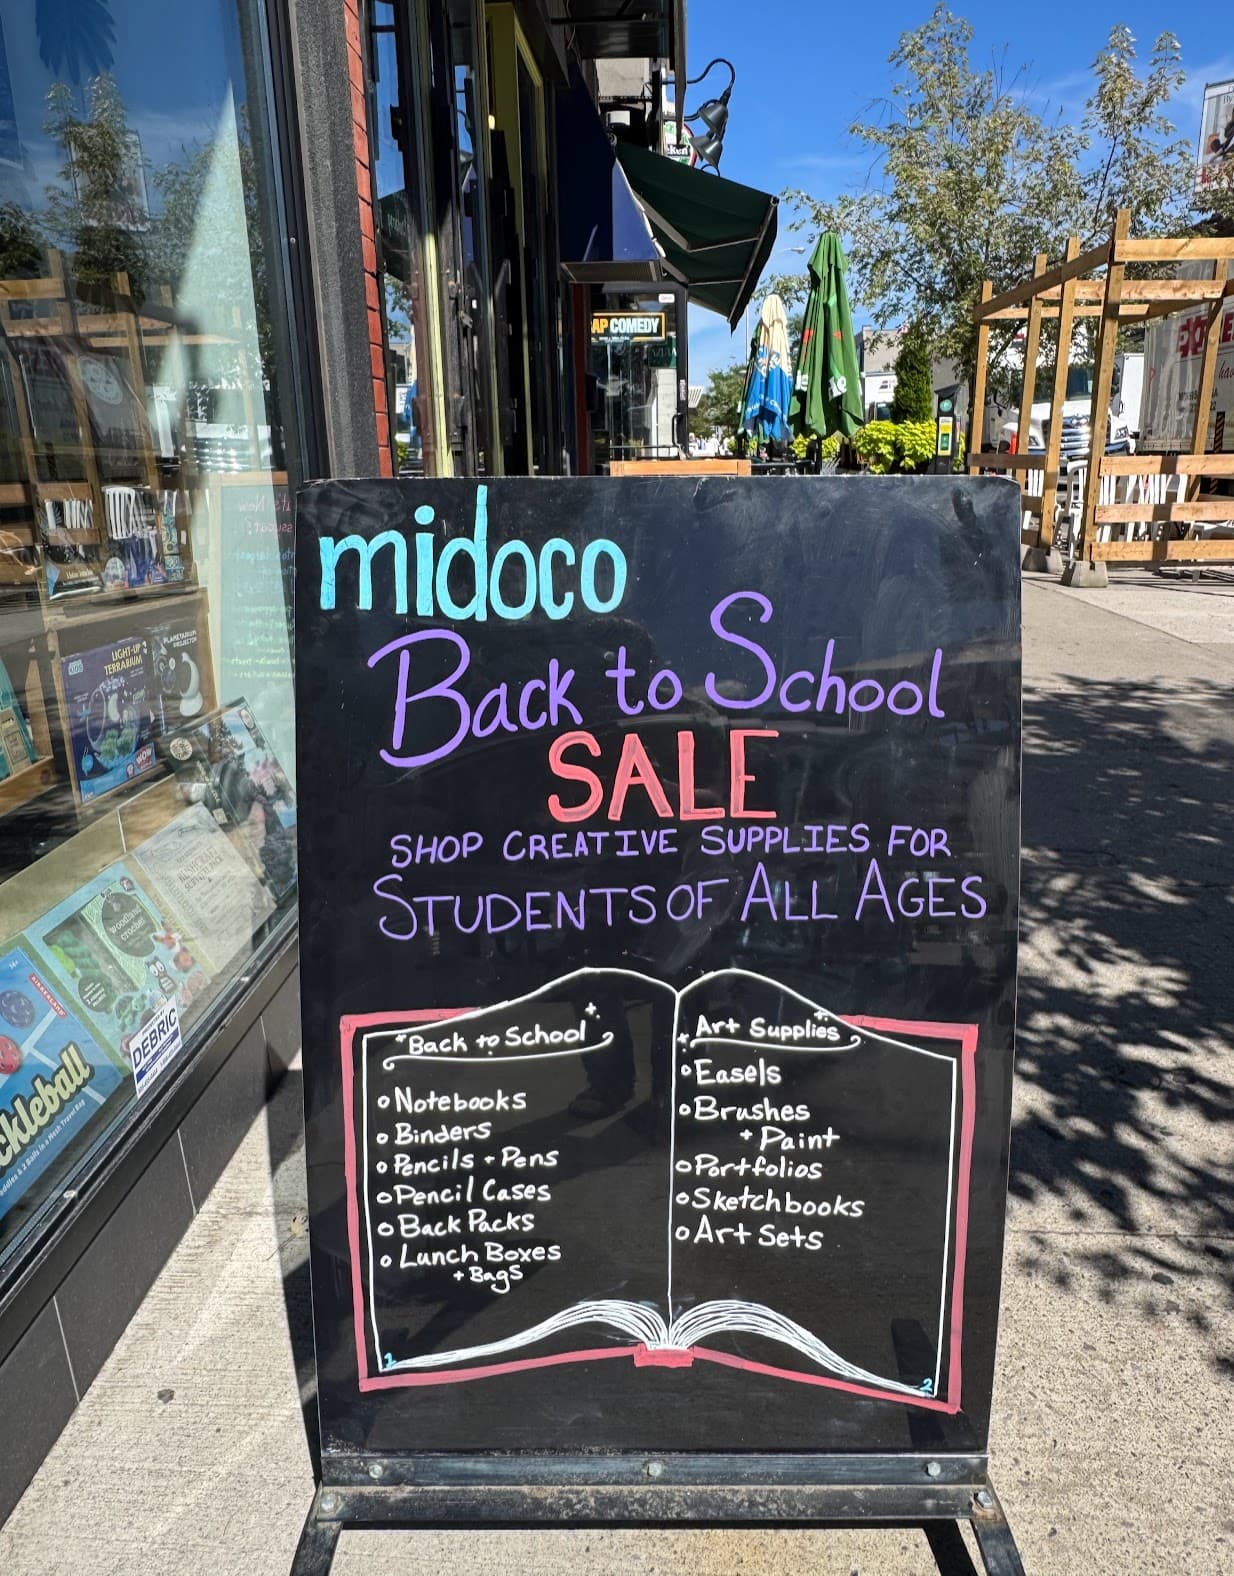 AP COMEDY
midoco
Back to School
SALE
SHOP CREATIVE SUPPLIES FOR
STUDENTS OF ALL AGES
Back to School
o Notebooks
o Binders
o Pencils + Pens
o Pencil Cases
o Back Packs
o Lunch Boxes
+ Bags
1
Art Supplies
o Easels
o Brushes
+ Paint
o Portfolios
o Sketchbooks
o Art Sets
2
LIGHT-UP
TERRARIUM
PLANETARIUM
PROJECTOR
woodland
crochet
DEBRIC
ckleball